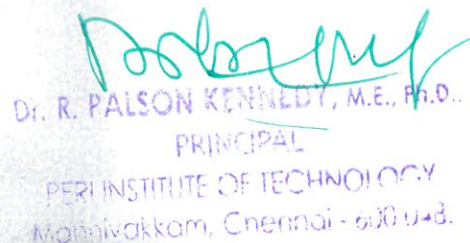 Dr. R. PALSON KENNEDY, M.E., Ph.D..
PRINCIPAL
PERI INSTITUTE OF TECHNOLOGY
Mannivakkam, Chennai - 600 048.